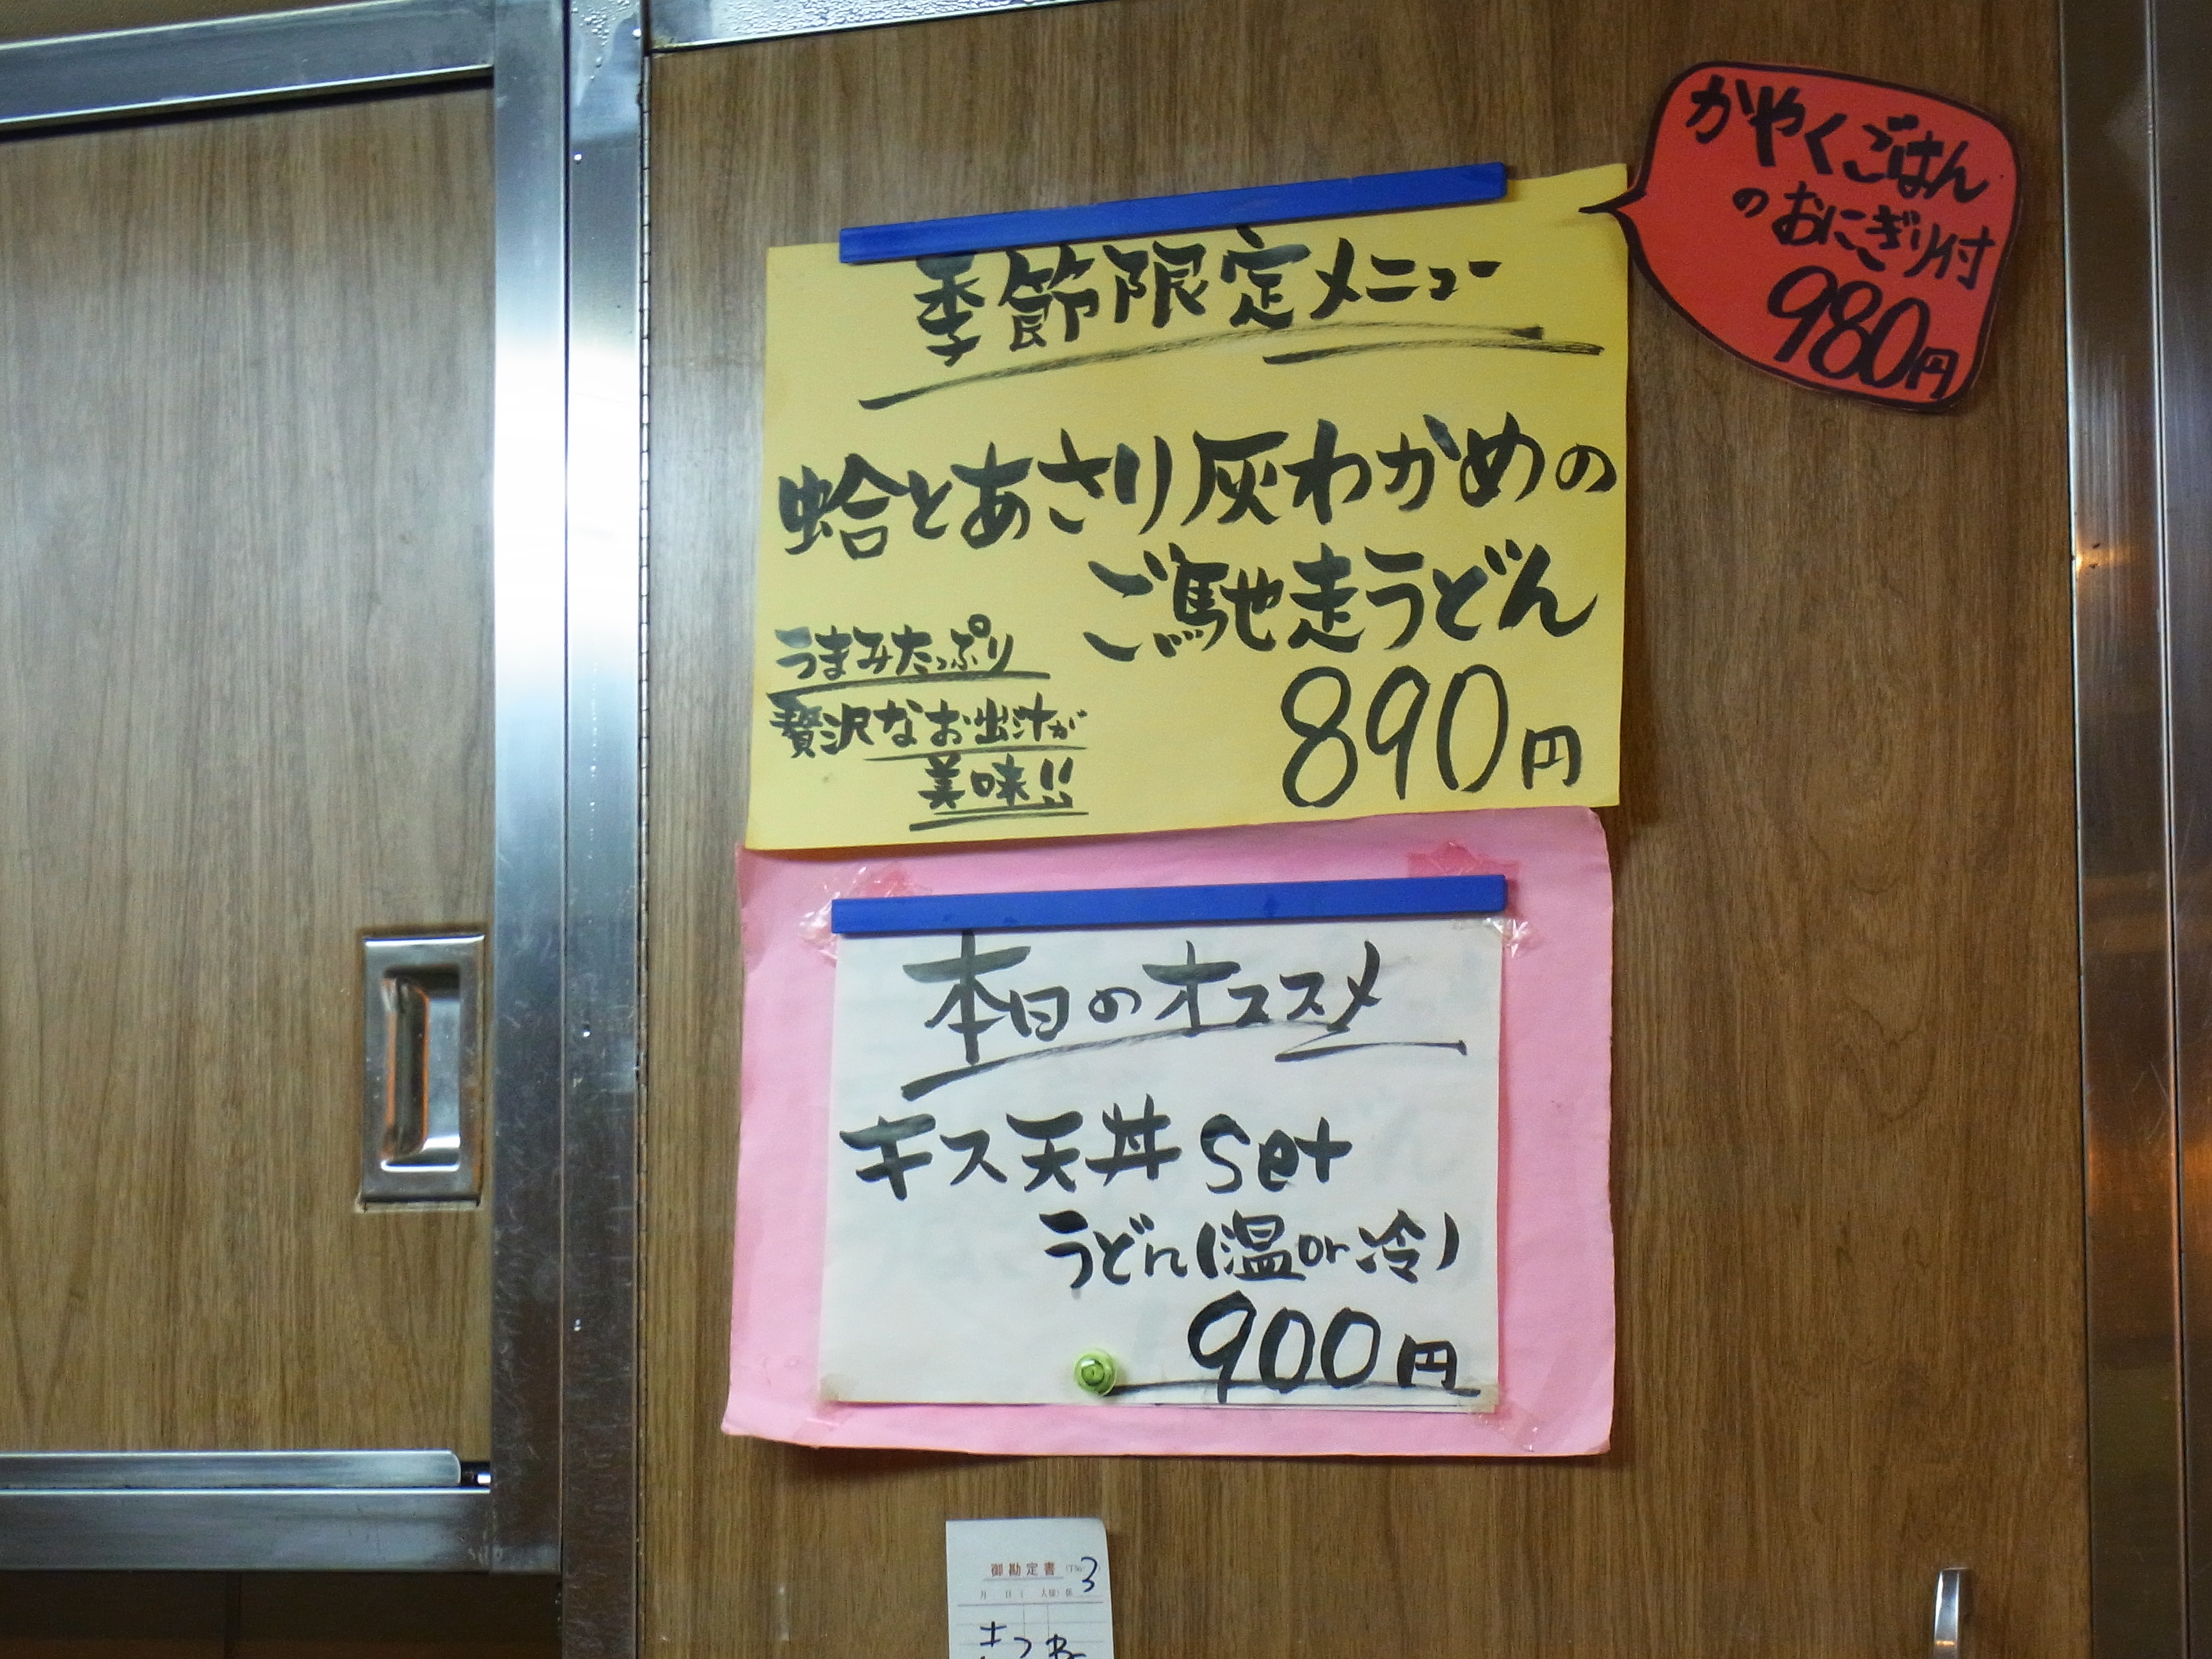 かやくごはん
のおにぎり付
980円
季節限定メニュー
蛤とあさり灰わかめの
ご馳走うどん
うまみたっぷり
贅沢なお出汁が
美味!!
890円
本日のオススメ
キス天丼set
うどん(温or冷)
900円
御勘定書
3
月 日